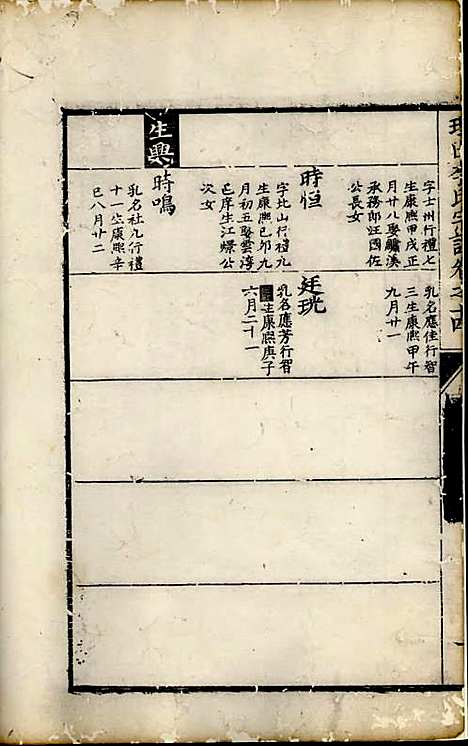 字士州行禮七
生康熙甲戌正
月廿八娶驌溪
承務郎汪國佐
公長女
乳名應佳行智
三生康熙甲午
九月廿一
時恒
字比山行禮九
生康熙己卯九
月初五娶雲濤
邑庠生江嶸公
次女
廷珖
乳名應芳行智
生康熙庚子
六月二十一
生興
時鳴
乳名社九行禮
十一生康熙辛
巳八月廿二